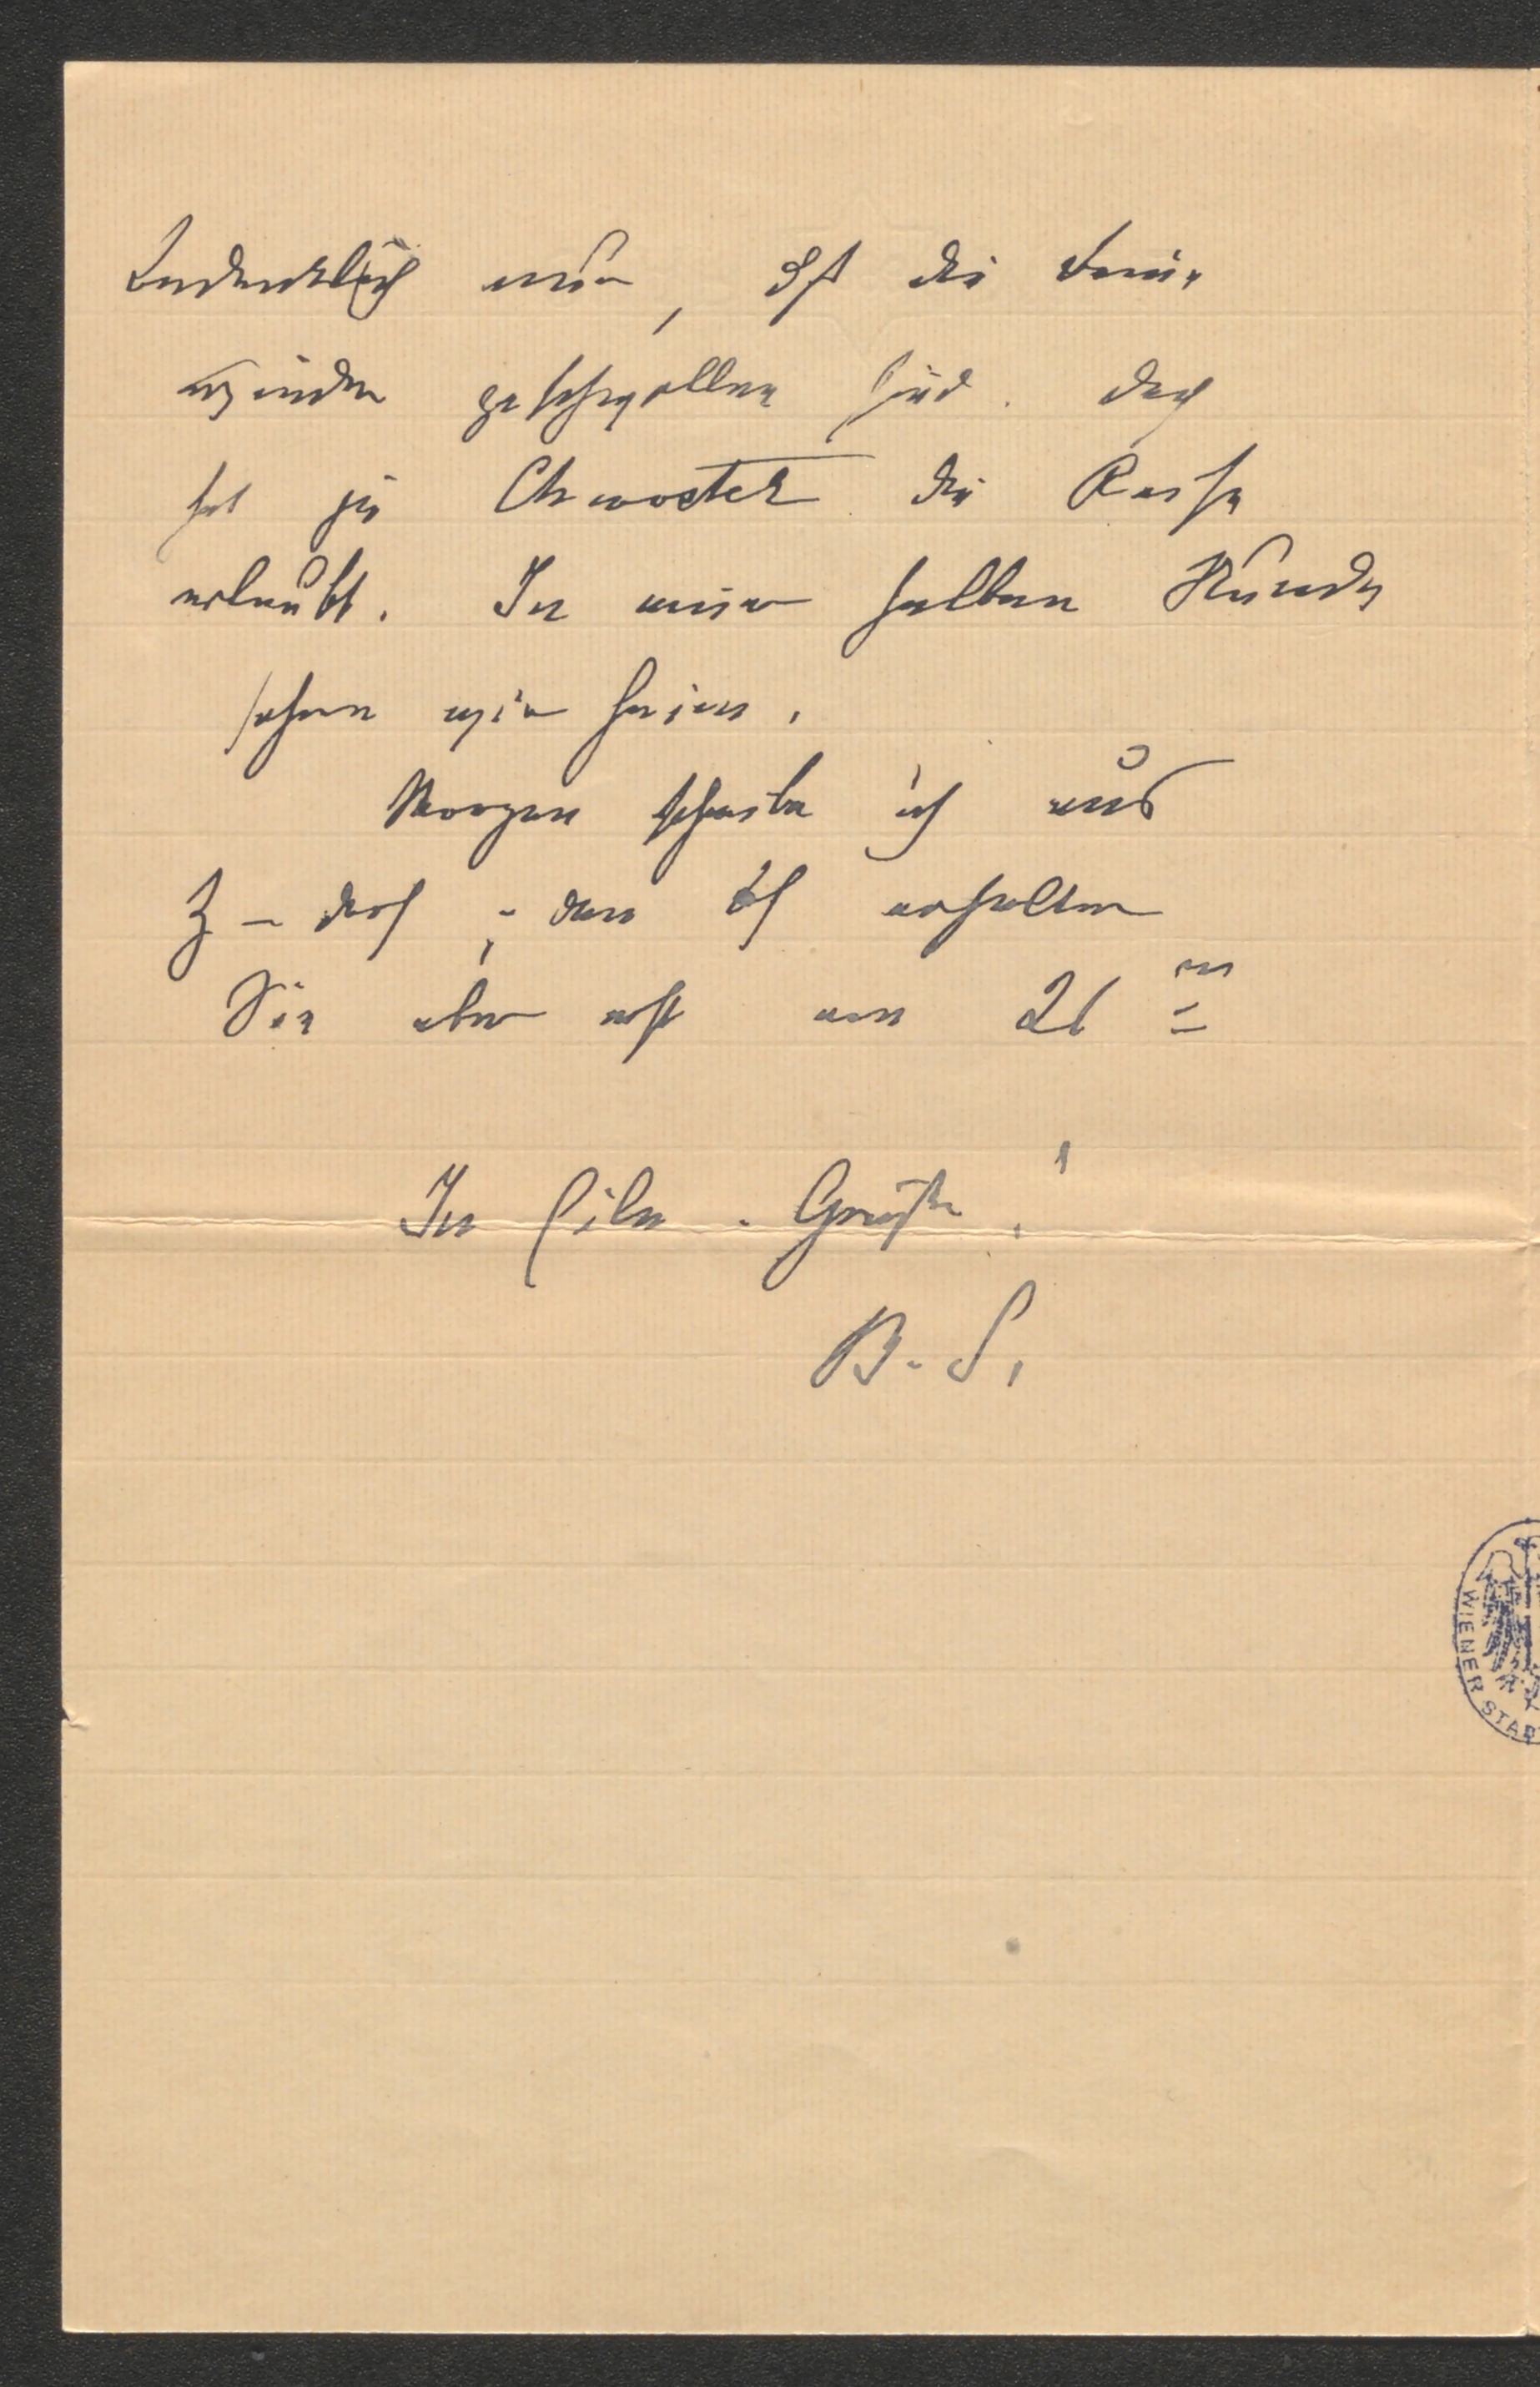 bedenklich nur, daß die Beine
wieder geschwollen sind. Doch
hat ja Chwostek die Reise
erlaubt. In einer halben Stunde
fahren wir heim.
Morgen schreibe ich aus
Z – dorf; den Bf erhalten
Sie aber erst am 26ten
In Eile. Grüße!
B. S.
WIENER STAD